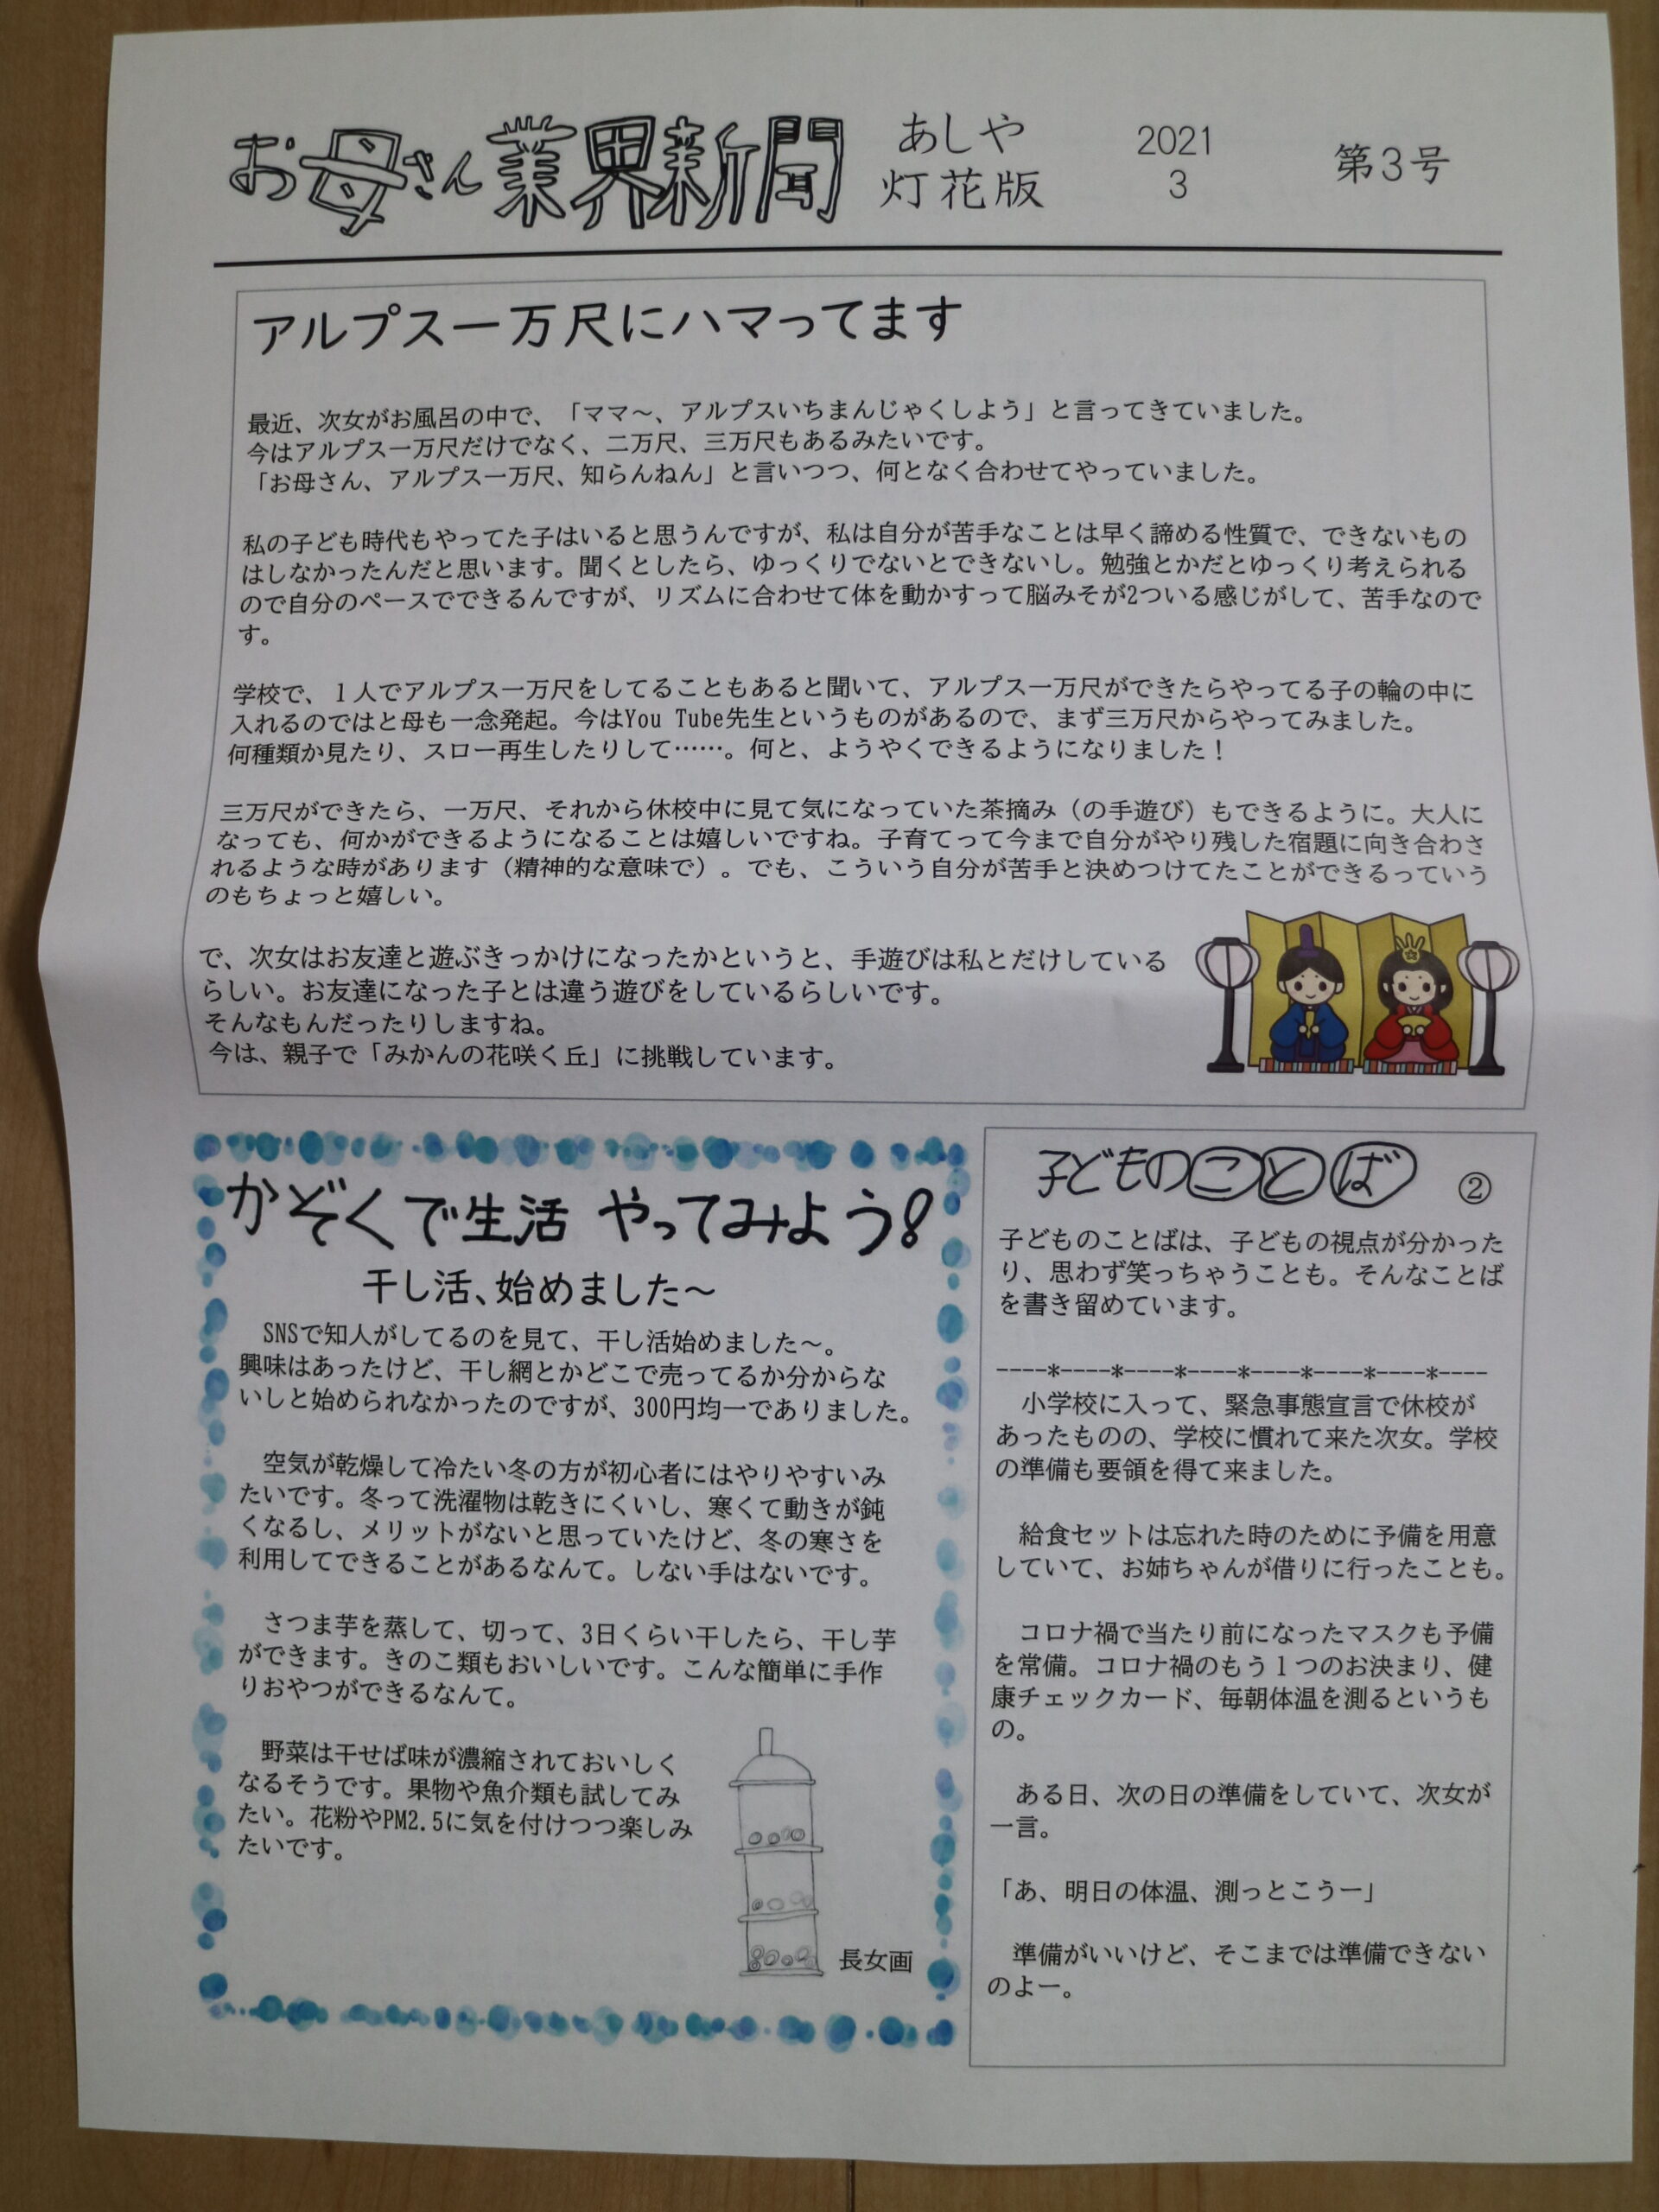 お母さん業界新聞
あしや
灯花版
2021
3
第3号
アルプス一万尺にハマってます
最近、次女がお風呂の中で、「ママ～、アルプスいちまんじゃくしよう」と言ってきていました。
今はアルプス一万尺だけでなく、二万尺、三万尺もあるみたいです。
「お母さん、アルプス一万尺、知らんねん」と言いつつ、何となく合わせてやっていました。
私の子ども時代もやってた子はいると思うんですが、私は自分が苦手なことは早く諦める性質で、できないもの
はしなかったんだと思います。聞くとしたら、ゆっくりでないとできないし。勉強とかだとゆっくり考えられる
ので自分のペースでできるんですが、リズムに合わせて体を動かすって脳みそが2ついる感じがして、苦手なので
す。
学校で、１人でアルプス一万尺をしてることもあると聞いて、アルプス一万尺ができたらやってる子の輪の中に
入れるのではと母も一念発起。今はYou Tube先生というものがあるので、まず三万尺からやってみました。
何種類か見たり、スロー再生したりして……。何と、ようやくできるようになりました！
三万尺ができたら、一万尺、それから休校中に見て気になっていた茶摘み（の手遊び）もできるように。大人に
なっても、何かができるようになることは嬉しいですね。子育てって今まで自分がやり残した宿題に向き合わさ
れるような時があります（精神的な意味で）。でも、こういう自分が苦手と決めつけてたことができるっていう
のもちょっと嬉しい。
で、次女はお友達と遊ぶきっかけになったかというと、手遊びは私とだけしている
らしい。お友達になった子とは違う遊びをしているらしいです。
そんなもんだったりしますね。
今は、親子で「みかんの花咲く丘」に挑戦しています。
かぞくで生活 やってみよう！
干し活、始めました～
SNSで知人がしてるのを見て、干し活始めました～。
興味はあったけど、干し網とかどこで売ってるか分からな
いしと始められなかったのですが、300円均一でありました。
空気が乾燥して冷たい冬の方が初心者にはやりやすいみ
たいです。冬って洗濯物は乾きにくいし、寒くて動きが鈍
くなるし、メリットがないと思っていたけど、冬の寒さを
利用してできることがあるなんて。しない手はないです。
さつま芋を蒸して、切って、3日くらい干したら、干し芋
ができます。きのこ類もおいしいです。こんな簡単に手作
りおやつができるなんて。
野菜は干せば味が濃縮されておいしく
なるそうです。果物や魚介類も試してみ
たい。花粉やPM2.5に気を付けつつ楽しみ
たいです。
長女画
子どものことば ②
子どものことばは、子どもの視点が分かった
り、思わず笑っちゃうことも。そんなことば
を書き留めています。
----*----*----*----*----*----*----*----
小学校に入って、緊急事態宣言で休校が
あったものの、学校に慣れて来た次女。学校
の準備も要領を得て来ました。
給食セットは忘れた時のために予備を用意
していて、お姉ちゃんが借りに行ったことも。
コロナ禍で当たり前になったマスクも予備
を常備。コロナ禍のもう１つのお決まり、健
康チェックカード、毎朝体温を測るというも
の。
ある日、次の日の準備をしていて、次女が
一言。
「あ、明日の体温、測っとこうー」
準備がいいけど、そこまでは準備できない
のよー。